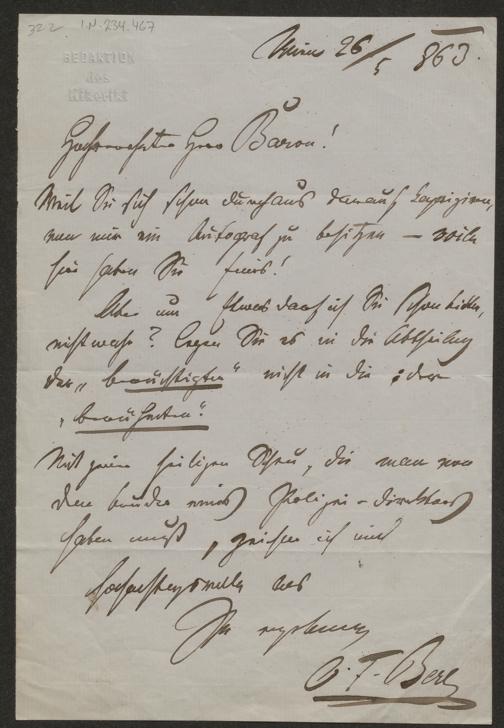 322 I.N. 234.467
REDAKTION
des
Kikeriki
Wien 26/5 863.
Hochverehrter Herr Baron!
Weil Sie sich schon durchaus darauf kapriziren,
von mir ein Autograf zu besitzen – voila
hier haben Sie eins!
Aber um Etwas darf ich Sie schon bitten,
nicht wahr? Legen Sie es in die Abtheilung
der „berüchtigten“ nicht in die der
„berühmten“.
Mit jener heiligen Scheu, die man vor
dem Bruder eines Polizei-Direktors
haben muß, zeichne ich mich
hochachtungsvoll als
Ihr ergebener
O. F. Berg